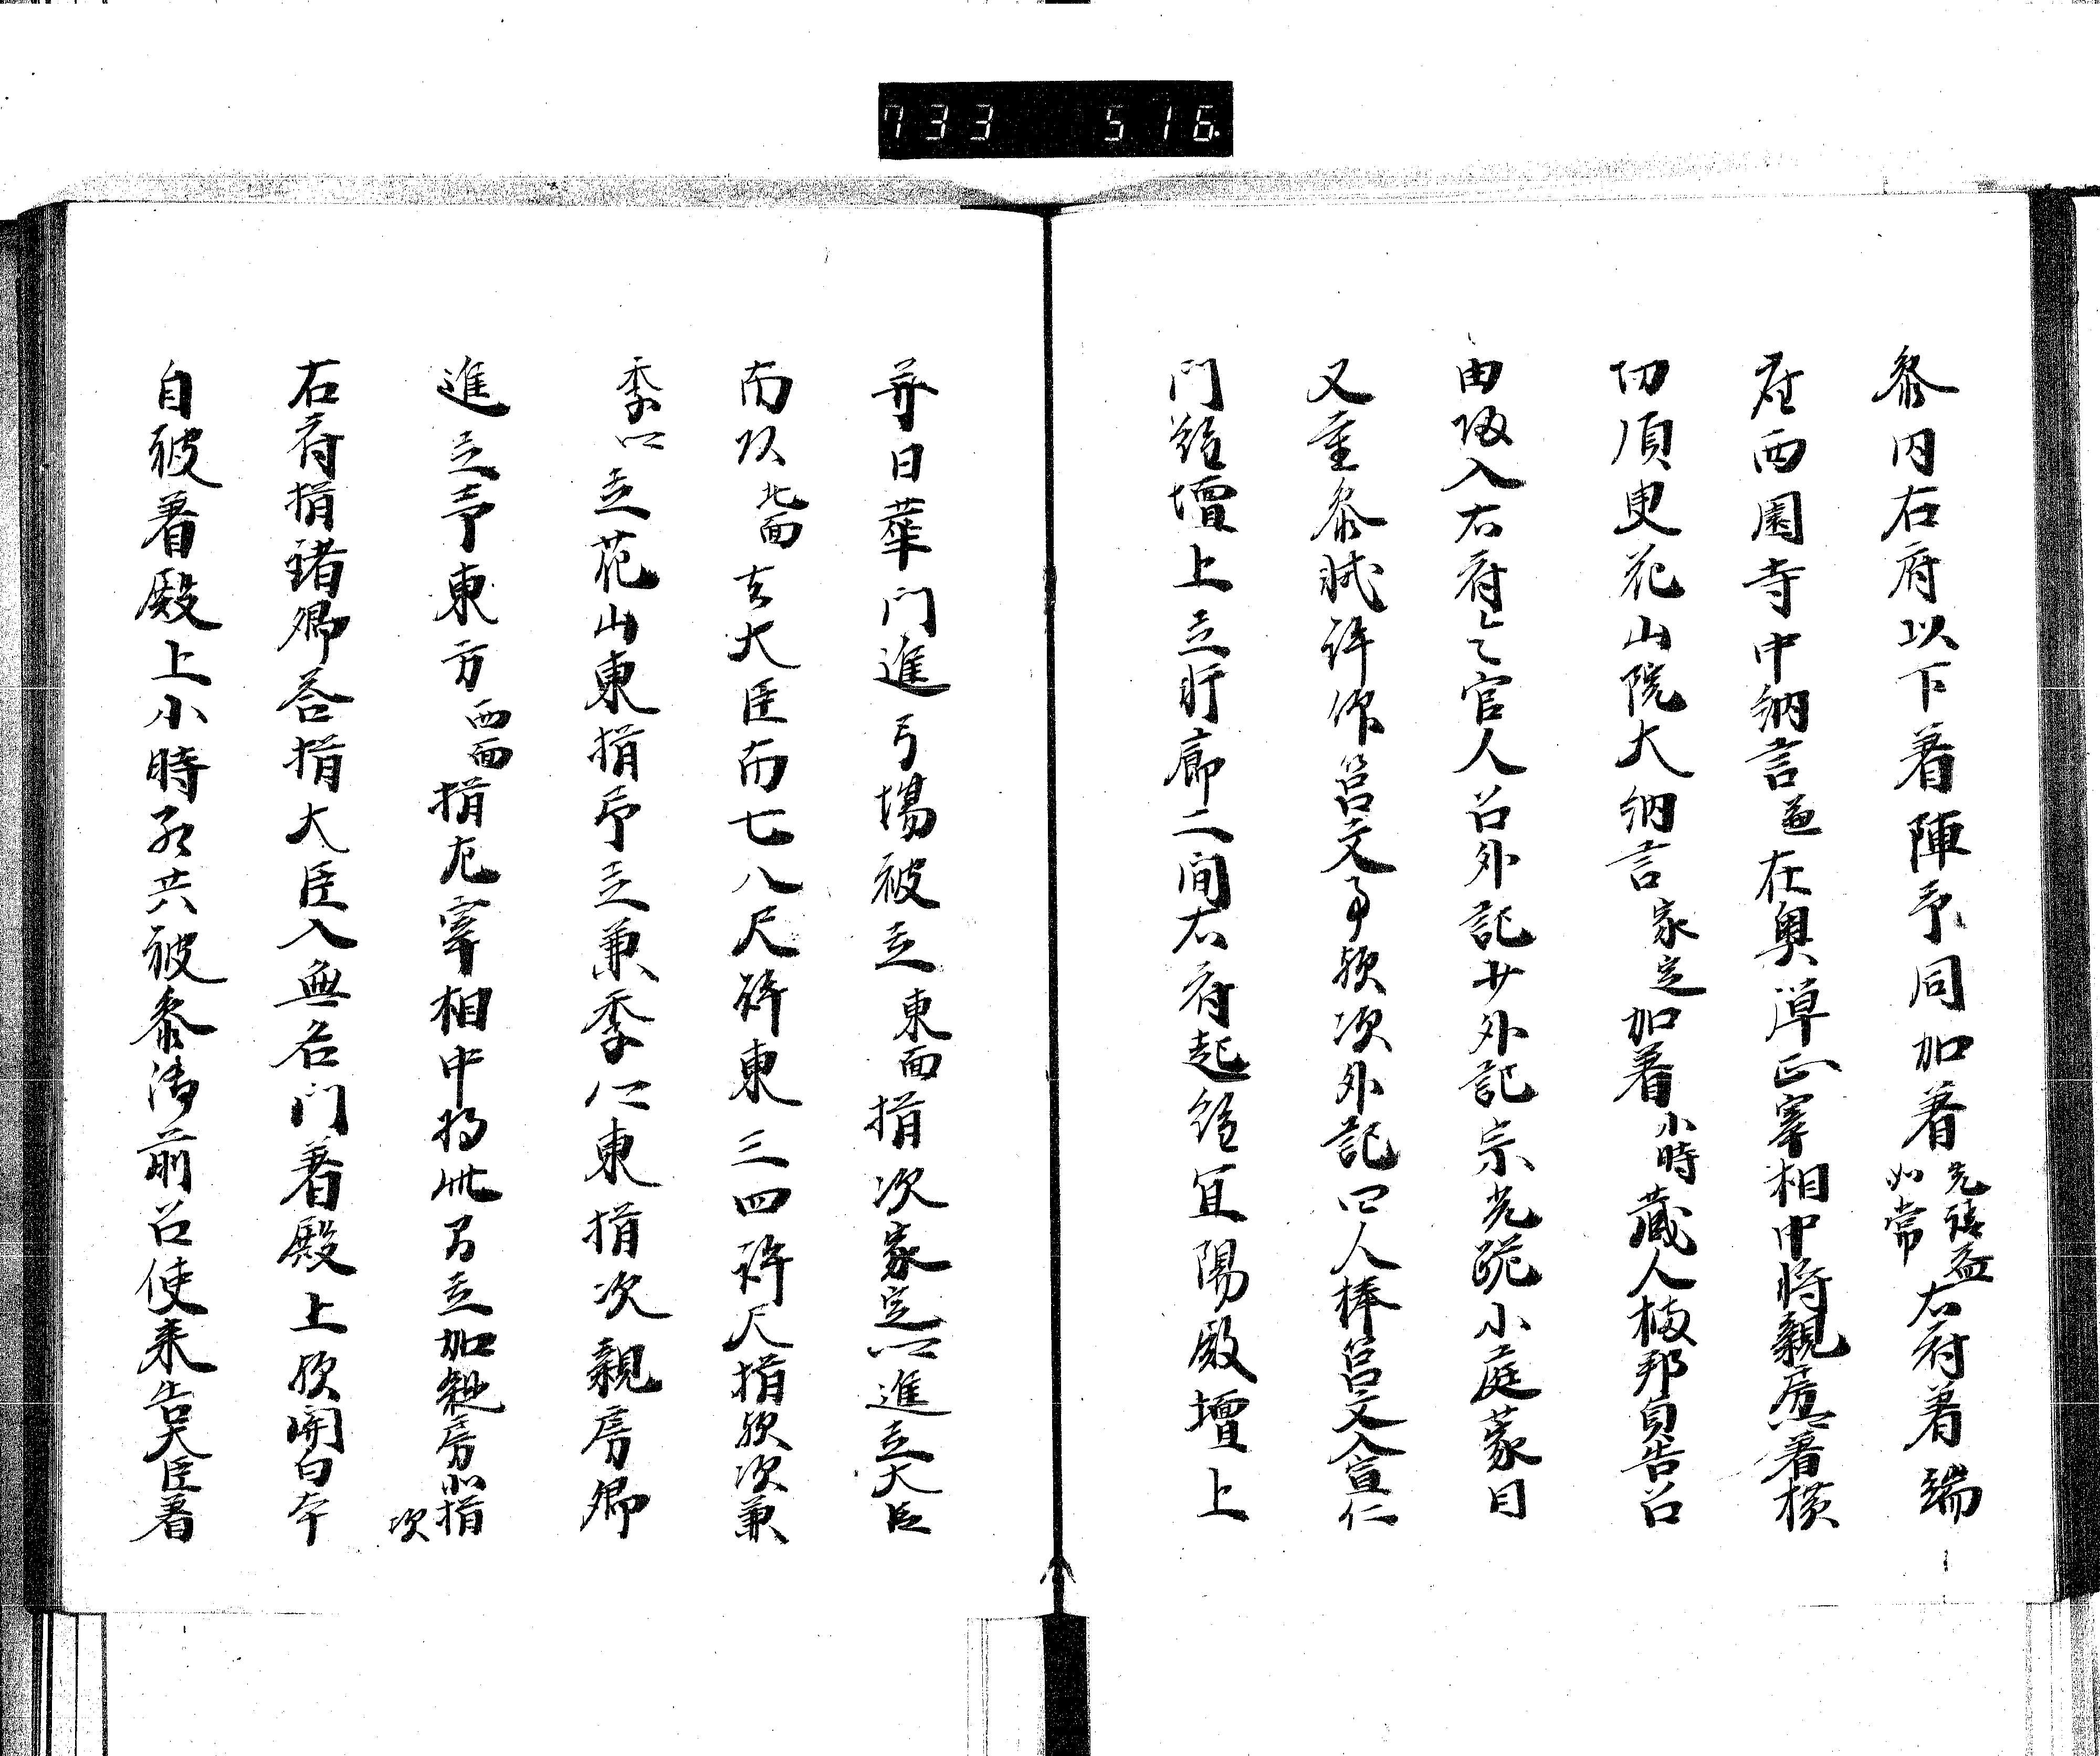 733 516
参内右府以下着陣予同加着 如常 右府着端
座西園寺中納言 在奥弾正宰相中将親房卿着横
切頃更花山院大納言 家定 加着 小時 蔵人 邦員告召
由以後入右府令官人召外記少外記宗光跪小庭蒙目
又重参軾許仰筥文事歟次外記四人捧筥文入宣仁
門経壇上立軒廊二間右府起経宜陽殿壇上
并日華門進弓場被立 東面 揖次家定卿進立大臣
南頭 北面 去大臣南七八尺許東三四許尺揖歟次兼
季卿立花山東揖予立兼季卿東揖次親房卿
進立予東方 西面 揖左宰相中将 加親房 揖次
右府揖諸卿答揖大臣入無名門着殿上歟関白本
自被着殿上小時 共被参御前召使来告大臣着